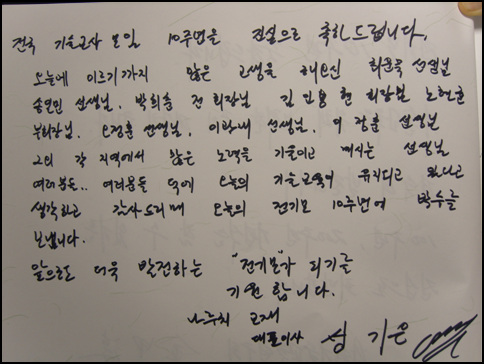 전국 기술교사 모임 10주년을 진심으로 축하드립니다.
오늘에 이르기까지 많은 고생을 해오신 최윤욱 선생님
송연민 선생님. 박희춘 전 회장님 김인용 현 회장님 노현준
부회장님. 오정훈 선생님, 이학내 선생님. 이정훈 선생님
그외 각 지역에서 많은 노력을 기울이고 계시는 선생님
여러분들.. 여러분들 덕에 오늘의 기술교육이 유지되고 있다고
생각하고 감사드리며 오늘의 전기모 10주년에 박수를
보냅니다.
앞으로도 더욱 발전하는 "전기모"가 되기를
기원합니다.
교재
대표이사 심 기운